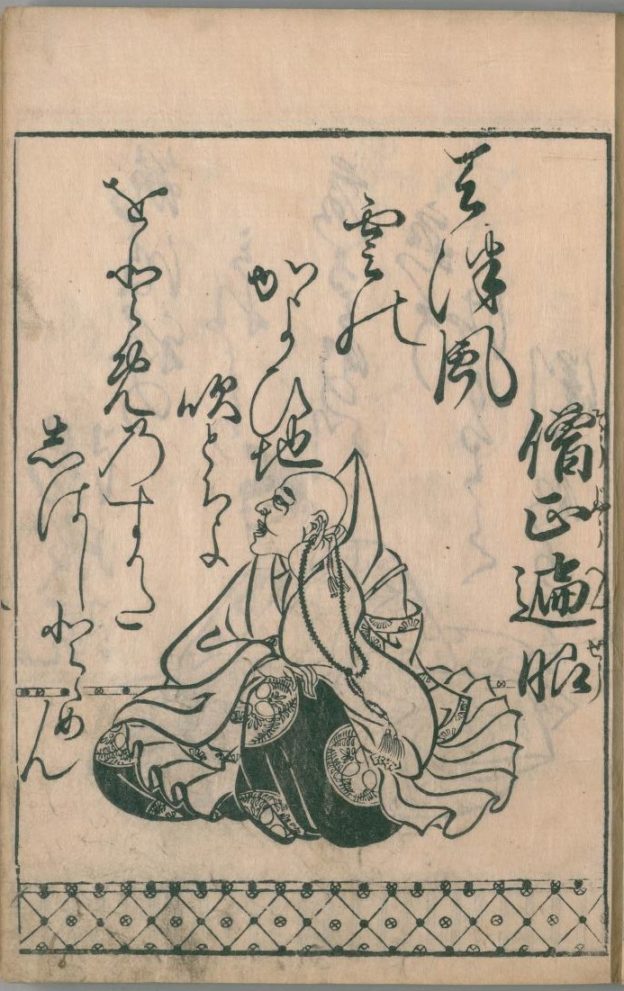 僧正遍昭
天津風
雲の
かよひ地
吹とちよ
をとめのすかた
しはしとゝめん